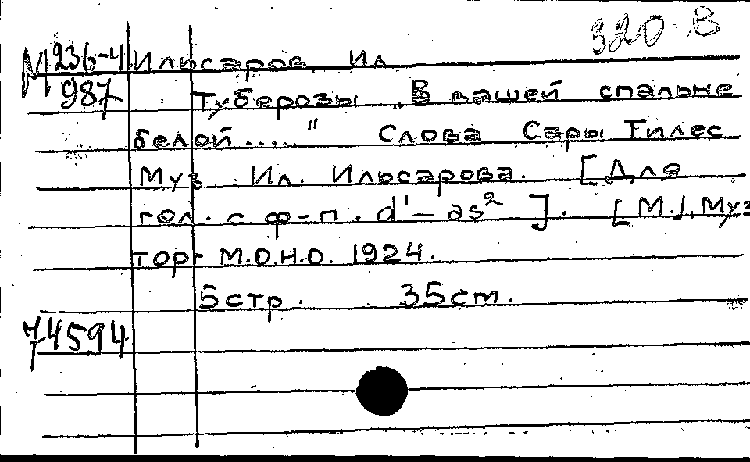 320 В
М 236-4 Илюсаров Ил
987 Туберозы „В вашей спальне
белой...." Слова Сары Тилес
Муз. Ил. Илюсарова. [Для
гол. с ф-п. d'-as²]. [М.], Муз
торг М.О.Н.О. 1924.
5 стр. 35 см.
74594